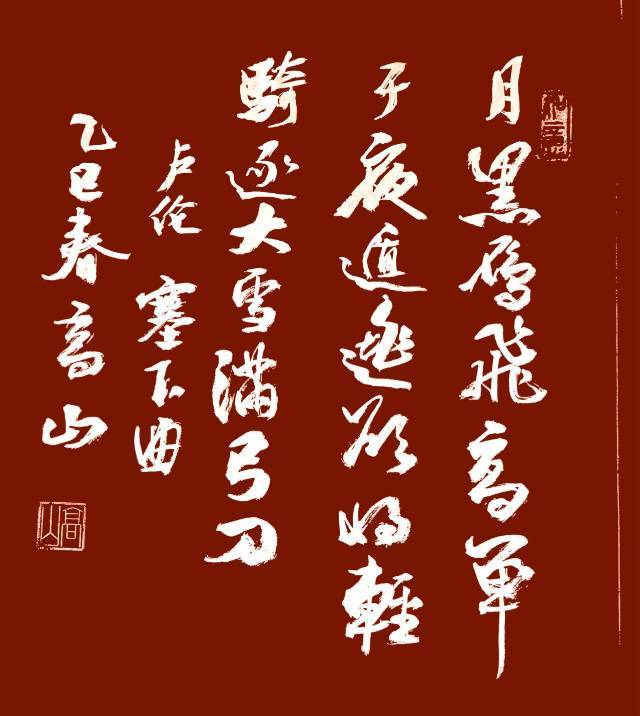 月黑雁飛高单
于夜遁逃欲将輕
騎逐大雪滿弓刀
卢伦 塞下曲
乙巳春高山
高山